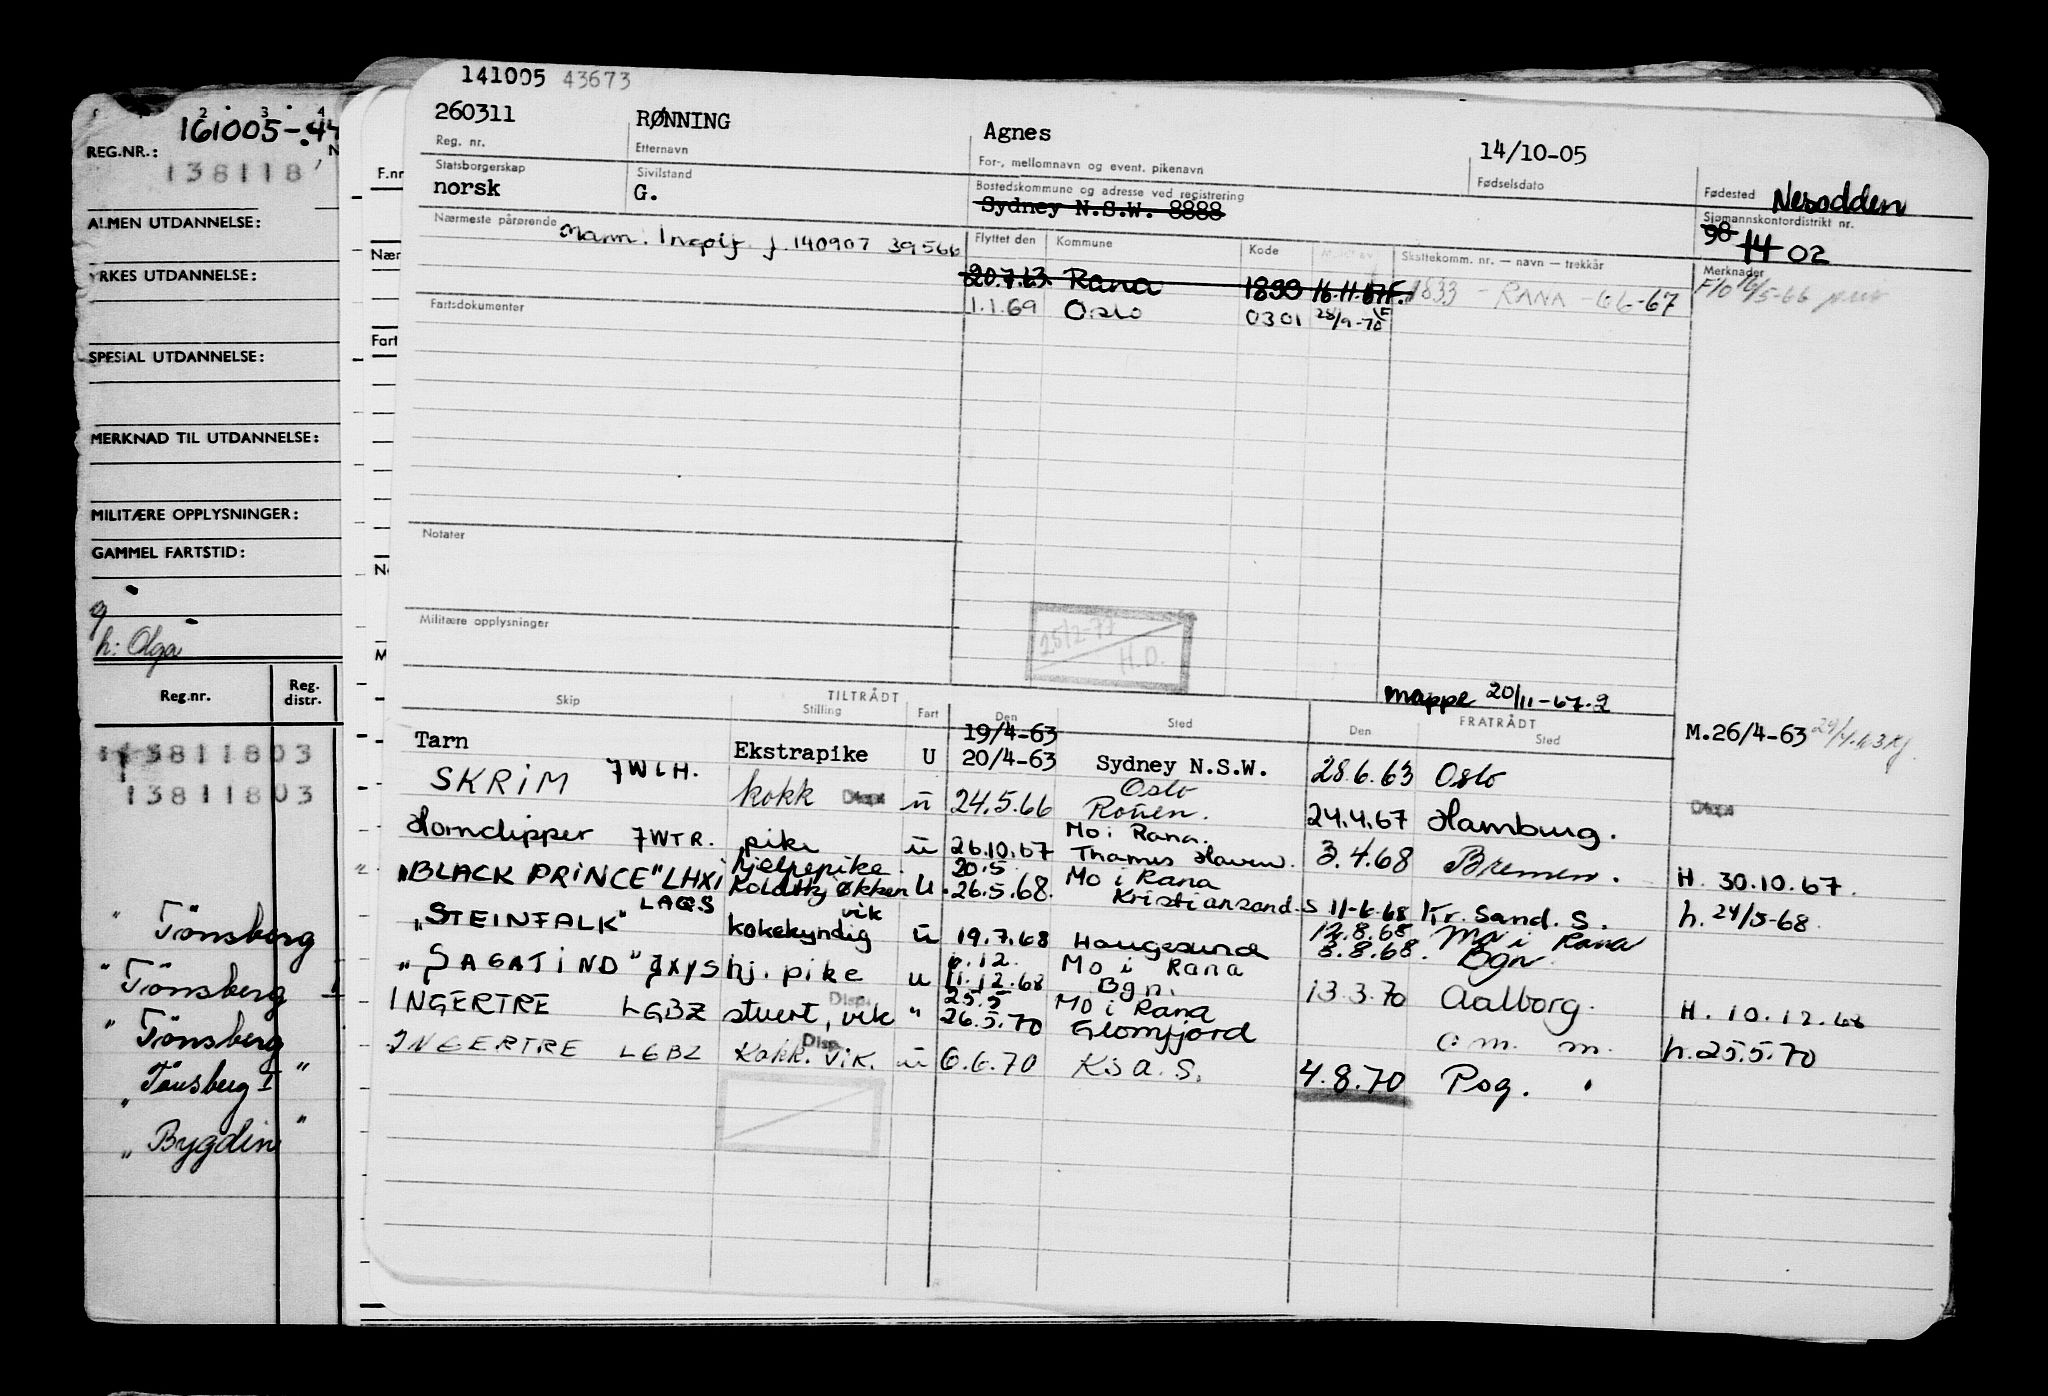 161005-44
REG.NR.:
138118
ALMEN UTDANNELSE:
YRKES UTDANNELSE:
SPESIAL UTDANNELSE:
MERKNAD TIL UTDANNELSE:
MILITÆRE OPPLYSNINGER:
GAMMEL FARTSTID:
g
h: Olga
Reg.nr. Reg. distr.
13811803
13811803
" Tönsberg
" Tönsberg I
" Tönsberg
" Tönsberg I "
" Bygdin "
F.nr
Nær
Fart
141005 43673
260311 RØNNING Agnes 14/10-05
Reg. nr. Etternavn For-, mellomnavn og event. pikenavn Fødselsdato Fødested Nesodden
Statsborgerskap Sivilstand Bostedskommune og adresse ved registrering Sjømannskontordistrikt nr.
norsk G. Sydney N.S.W. 8888 98 14 02
Nærmeste pårørende Mann. Ingolf f. 140907 39566 Flyttet den Kommune Kode Skattekomm. nr. — navn — trekkår Merknader
20.7.63 Rana 1833 16.11.67F. 1833 - RANA - 66-67
Fartsdokumenter 1.1.69 Oslo 0301 28/9-70
Notater
Militære opplysninger
25/2-77
H.D.
mappe 20/11-67.
Skip TILTRÅDT FRATRÅDT
Stilling Fart Den Sted Den Sted
19/4-63
Tarn Ekstrapike U 20/4-63 Sydney N.S.W. 28.6.63 Oslo M.26/4-63
Oslo
SKRIM 7WLH. kokk Disp u 24.5.66 Rouen. 24.4.67 Hamburg. Disp
Mo i Rana.
Hornclipper 7WTR. pike u 26.10.67 Thames Haven. 3.4.68 Bremen. H. 30.10.67.
hjelpepike 20.5 Mo i Rana
"BLACK PRINCE" LHXI Koldtkjøkken U. 26.5.68. Kristiansand S 11-6-68 Kr. Sand. S. h. 24/5-68
vik 12.8.68 Mo i Rana
"STEINFALK" LAQS kokekyndig u 19.7.68 Haugesund 8.8.68. Bgn.
12. Mo i Rana
"SAGATIND" JXYS hj. pike u 11.12.68 Bgn. 13.3.70 Aalborg. H. 10.12.68
Disp. 25.5 Mo i Rana
INGERTRE LGBZ stuert, vik " 26.5.70 Glomfjord m. h.25.5.70
Disp.
INGERTRE LGBZ Kokk. vik. u 6.6.70 K.s a. S. 4.8.70 Psg.